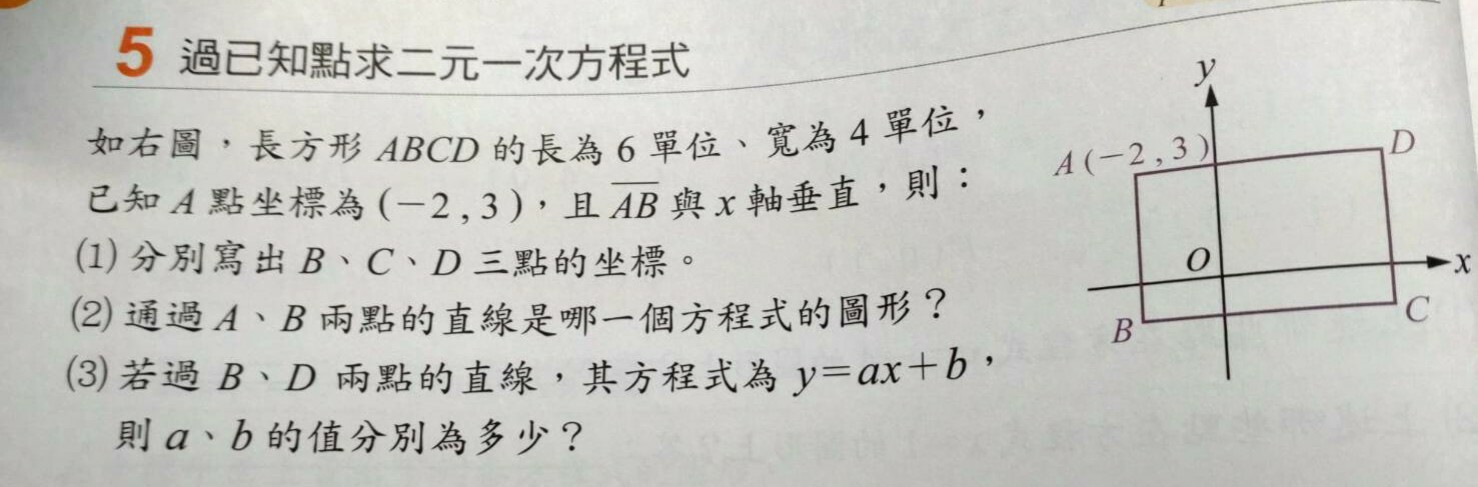 5 過已知點求二元一次方程式
如右圖，長方形 ABCD 的長為 6 單位、寬為 4 單位，
已知 A 點坐標為 (−2 , 3)，且 AB 與 x 軸垂直，則：
⑴ 分別寫出 B、C、D 三點的坐標。
⑵ 通過 A、B 兩點的直線是哪一個方程式的圖形？
⑶ 若過 B、D 兩點的直線，其方程式為 y=ax+b，
則 a、b 的值分別為多少？
y
A(−2 , 3)
D
O
x
B
C